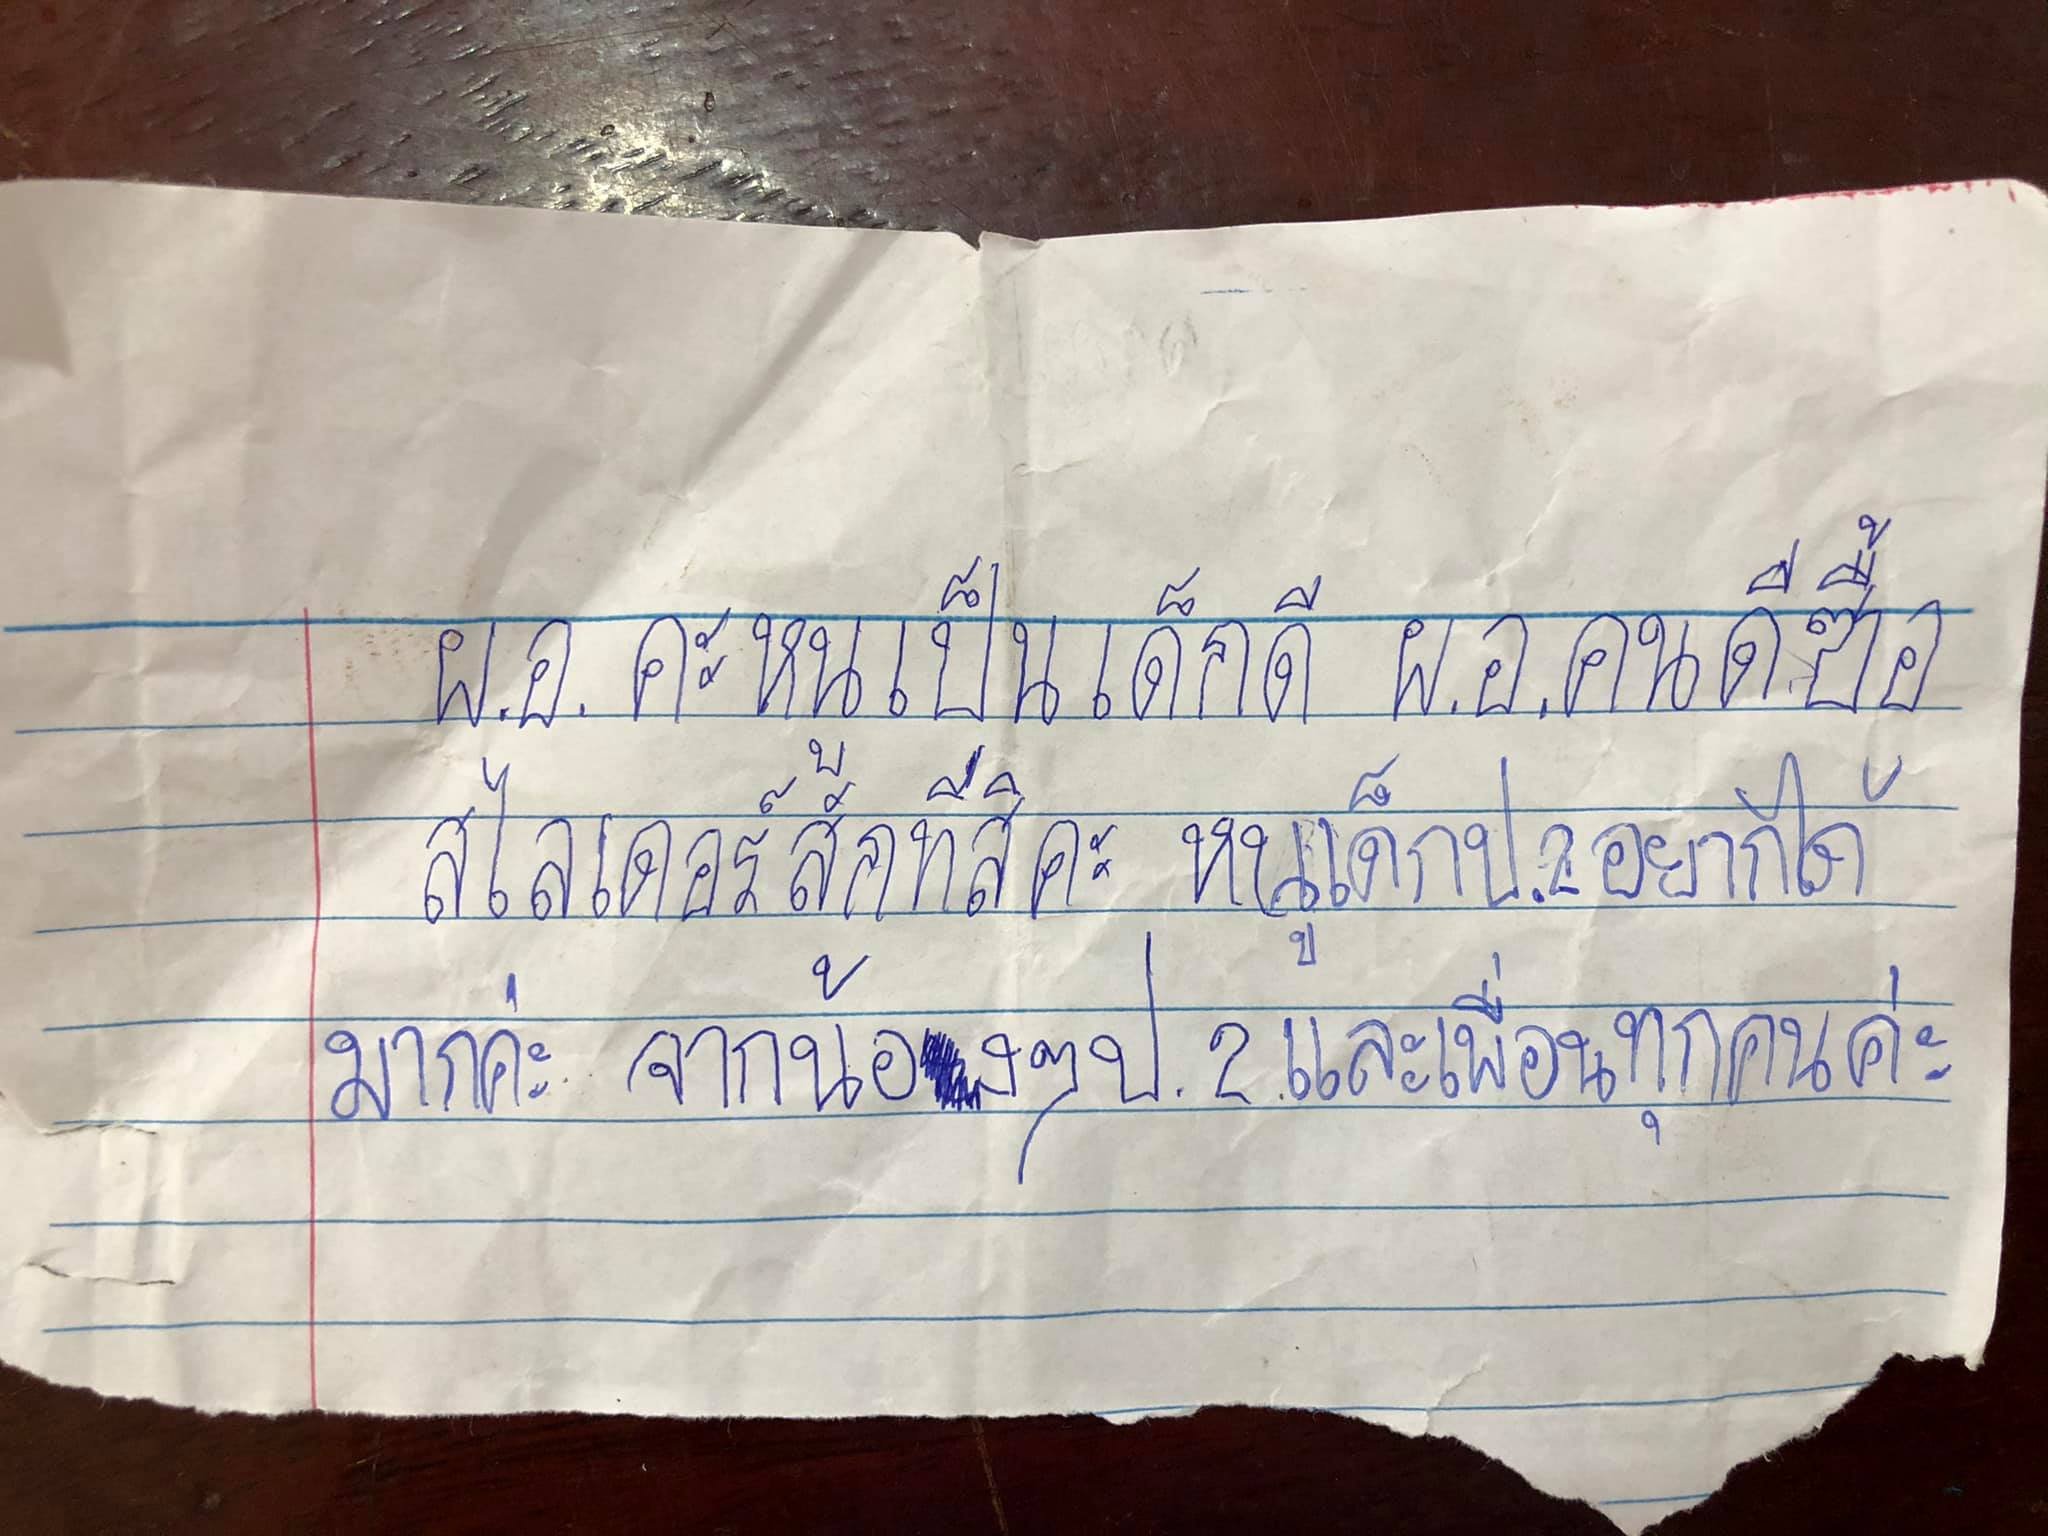 ผ.อ. คะหนูเป็นเด็กดี ผ.อ.คนดีซื้อ
สไลเดอร์สักทีสิคะ หนูเด็กป.2อยากได้
มากค่ะ จากน้องๆป.2และเพื่อนทุกคนค่ะ